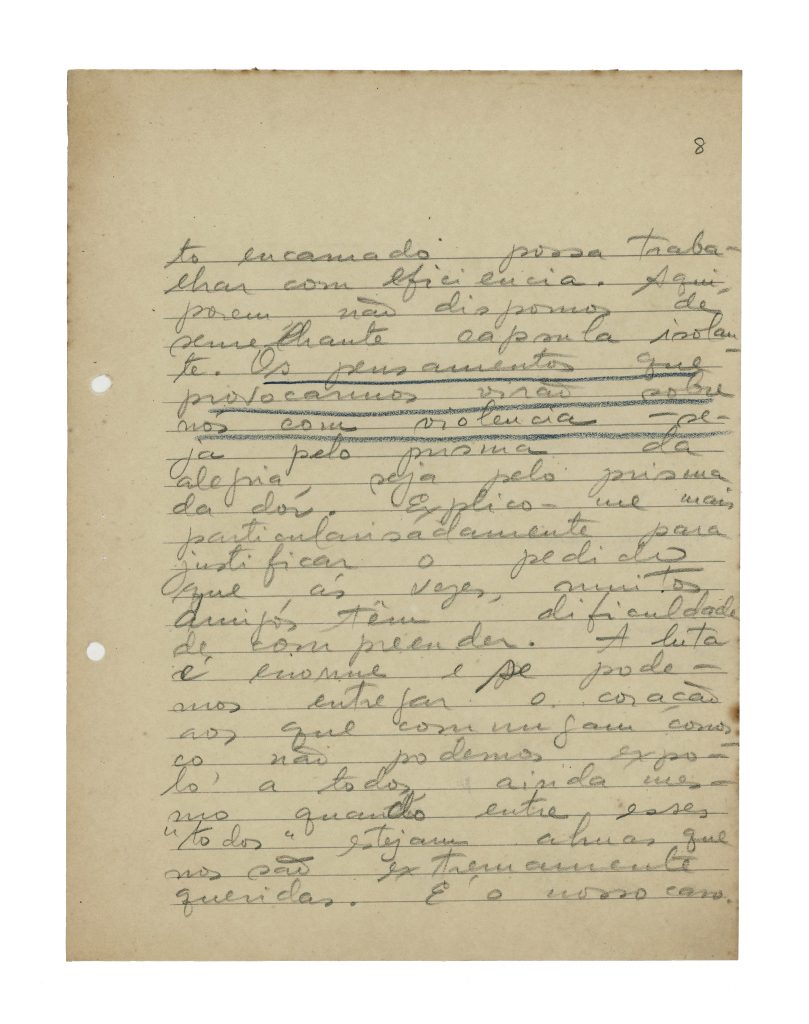 8
to encarnado possa traba-
lhar com eficiencia. Aqui,
porem não dispomos de
semelhante capsula isolan-
te. Os pensamentos que
provocarmos virão sobre
nós com violencia - se-
ja pelo prisma da
alegria, seja pelo prisma
da dôr. Explico-me mais
particularisadamente para
justificar o pedido
que ás vezes, muitos
amigos têm dificuldade
de compreender. A luta
é enorme e se pode-
mos entregar o coração
aos que comungam conos
co não podemos expo-
lo a todos ainda mes-
mo quando entre esses
"todos" estejam almas que
nos são extremamente
queridas. É o nosso caso.